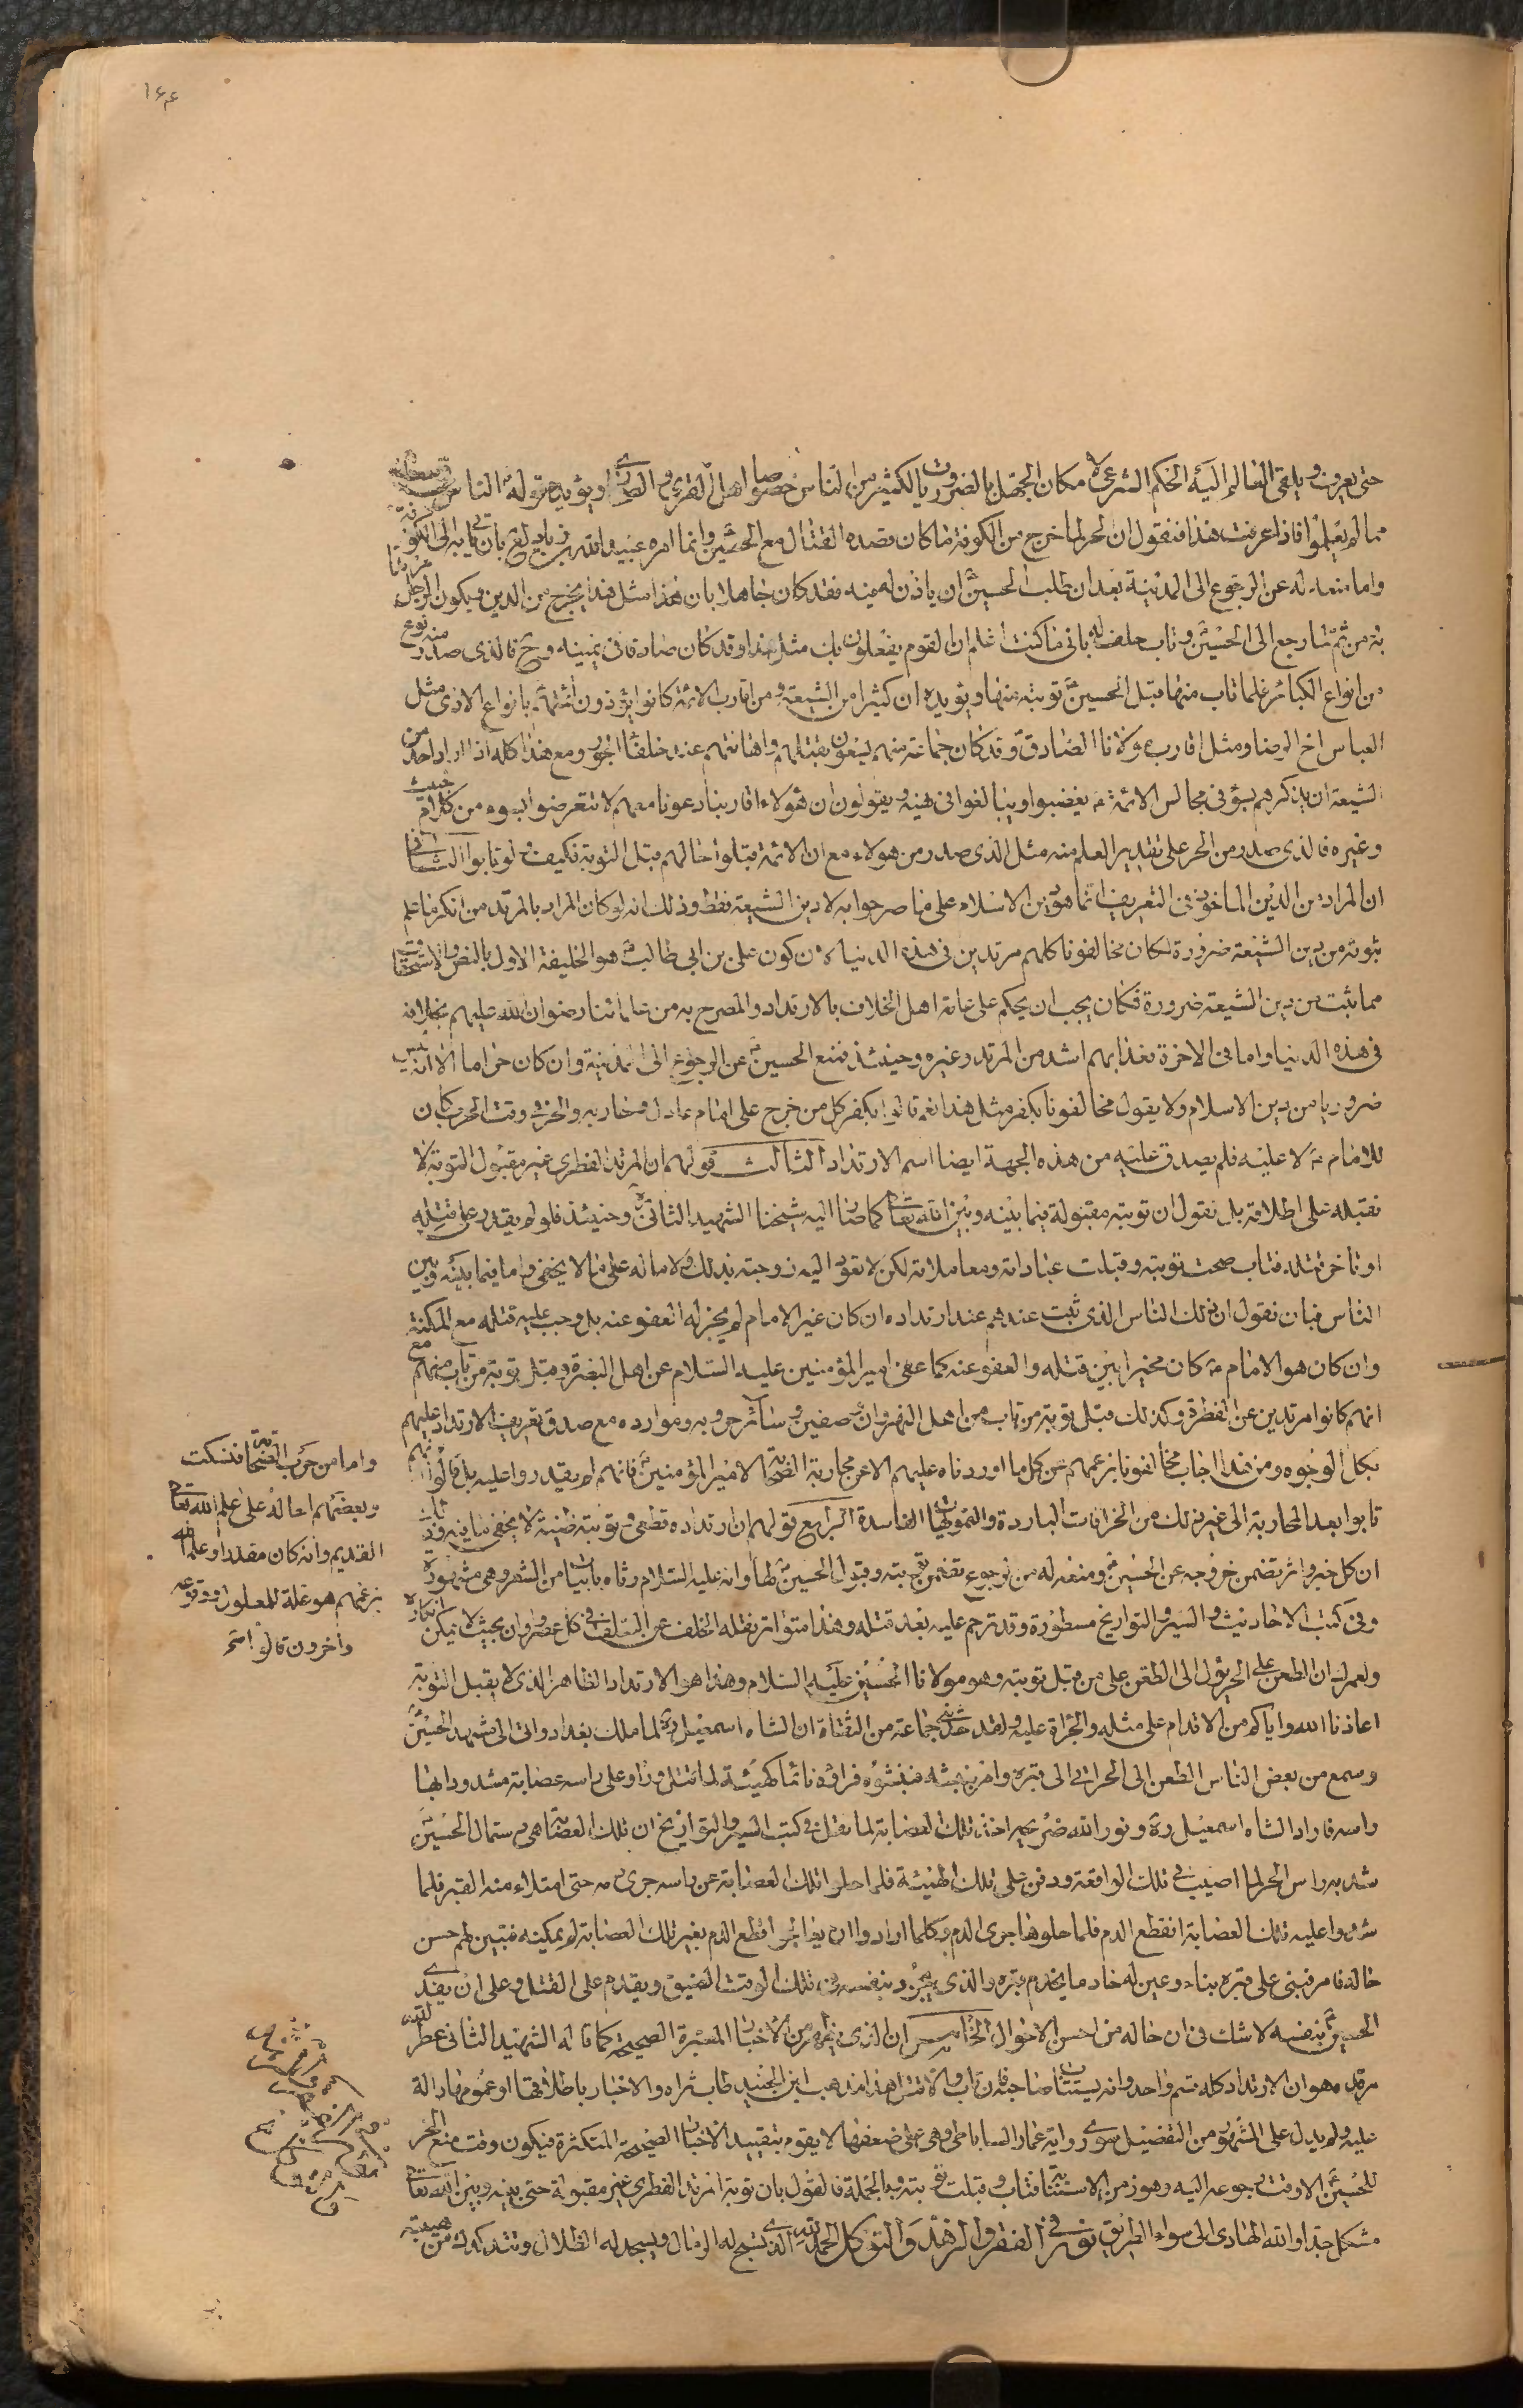 ۱۶۴
حتى يعرف ويلقى العالم اليه الحكم الشرعي لا مكان الجهل بالضروريات بالكثير من الناس خصوصا اهل القرى والصحارى ويؤيده قوله الناس في سعة
مما لم يعلموا فاذا عرفت هذا فنقول ان الحر لما خرج من الكوفة ما كان قصده القتال مع الحسين وانما امره عبيد الله بن زياد لع بان ياتي به الى الكوفة
واما منعه له عن الرجوع الى المدينة بعد ان طلب الحسين ان ياذن له فيه فقد كان جاهلا بان هذا مثل هذا يخرج من الدين ويكون الرجل مرتدا
به من ثم لما رجع الى الحسين وتاب حلف له باني ما كنت اعلم ان القوم يفعلون بك مثل هذا وقد كان صادقا في يمينه وح فالذي صدر منه نوع
من انواع الكبائر فلما تاب منها قبل الحسين توبته منها ويؤيده ان كثيرا من الشيعة ومن اقارب الائمة كانوا يؤذون ائمتهم بانواع الاذى مثل
العباس اخ الرضا ومثل اقارب مولانا الصادق وقد كان جماعة منهم يسعون بقتلهم واهانتهم عند خلفاء الجور ومع هذا كله اذا اراد احد من
الشيعة ان يذكرهم بسوء في مجالس الائمة ع يغضبوا ويبالغوا في نهيه ويقولون ان هؤلاء اقاربنا دعونا معهم لا تتعرضوا لهم بسوء من كلام خبيث
وغيره فالذي صدر من الحر على تقدير العلم منه مثل الذي صدر من هؤلاء مع ان الائمة قبلوا حالهم قبل التوبة فكيف ولو تابوا الثاني
ان المراد من الدين الماخوذ في التعريف انما هو دين الاسلام على ما صرحوا به لا دين الشيعة فقط وذلك انه لو كان المراد بالمرتد من انكر ما علم
ثبوته من دين الشيعة ضرورة لكان مخالفونا كلهم مرتدين في هذه الدنيا لان كون علي بن ابي طالب هو الخليفة الاول بالنص والاستحقاق
مما يثبت من دين الشيعة ضرورة فكان يجب ان يحكم على عامة اهل الخلاف بالارتداد والمصرح به من علمائنا رضوان الله عليهم بخلافه
في هذه الدنيا واما في الاخرة فعذابهم اشد من المرتد وغيره وحينئذ فمنع الحسين عن الرجوع الى المدينة وان كان حراما الا انه ليس
ضروريا من دين الاسلام ولا يقول مخالفونا بكفر مثل هذا نعم قالوا بكفر كل من خرج على امام عادل وحاربه والحر في وقت الحرب كان
للامام ع لا عليه فلم يصدق عليه من هذه الجهة ايضا اسم الارتداد الثالث قولهم ان المرتد الفطري غير مقبول التوبة لا
نقبله على اطلاقه بل نقول ان توبته مقبولة فيما بينه وبين الله تعالى كما صار اليه شيخنا الشهيد الثاني ره وحينئذ فلو لم يقدر على قتله
او تاخر قتله فتاب صحت توبته وقبلت عباداته ومعاملاته لكن لا تعود اليه زوجته بذلك ولا ماله على ما لا يخفى واما فيما بينه وبين
الناس فبان نقول ان ذلك الناس الذي ثبت عندهم عند ارتداده ان كان غير الامام لم يجز له العفو عنه بل وجب عليه قتله مع المكنة
وان كان هو الامام ع كان مخيرا بين قتله والعفو عنه كما عفى امير المؤمنين عليه السلام عن اهل البصرة وقبل توبة من تاب منهم مع
انهم كانوا مرتدين عن الفطرة وكذلك قبل توبة من تاب من اهل النهروان وصفين وسائر حروبه وموارده مع صدق تعريف الارتداد عليهم
بكل الوجوه ومن هذا اجاب مخالفونا بزعمهم عن كل ما اوردناه عليهم الا عن محاربة الصحابة لامير المؤمنين فانهم لم يقدروا عليه بل قالوا انهم
تابوا بعد المحاربة الى غير ذلك من الخرافات الباردة والتمويهات الفاسدة الرابع قولهم ان ارتداده قطعي وتوبته ظنية لا يخفى ما فيه
ان كل خبر واثر تضمن خروجه عن الحسين ومنعه له من الرجوع تضمن توبته وقبول الحسين لها وانه عليه السلام رثاه بابيات من الشعر وهي مشهورة
وفي كتب الاحاديث والسير والتواريخ مسطورة وقد ترحم عليه بعد قتله وهذا متواتر نقله الخلف عن السلف في كل عصر واوان بحيث لا يمكن انكاره
ولعمرك ان الطعن على الحر يؤل الى الطعن على من قبل توبته وهو مولانا الحسين عليه السلام وهذا هو الارتداد الظاهر الذي لا يقبل التوبة
اعاذنا الله واياكم من الاقدام على مثله والجراة عليه ولقد حدثني جماعة من الثقاة ان الشاه اسمعيل ره لما ملك بغداد واتى الى مشهد الحسين
وسمع من بعض الناس الطعن الى الحر اتى الى قبره وامر بنبشه فنبشوه فراوه نائما كهيئته لما قتل وراوا على راسه عصابة مشدود بها
راسه فاراد الشاه اسمعيل ره ونور الله ضريحه اخذ تلك العصابة لما نقل في كتب السير والتواريخ ان تلك العصابة هي دستمال الحسين
شد به راس الحر لما اصيب في تلك الواقعة ودفن على تلك الهيئة فلما حلوا تلك العصابة عن راسه جرى دمه حتى امتلاء منه القبر فلما
شدوا عليه تلك العصابة انقطع الدم فلما حلوها جرى الدم وكلما ارادوا ان يعالجوا قطع الدم بغير تلك العصابة لم يمكنه فتبين لهم حسن
حاله فامر فبنى على قبره بناء وعين له خادما يخدم قبره والذي يجود بنفسه في تلك الوقت المضيق ويقدم على القتل وعلى ان يفدي
الحسين بنفسه لا شك في ان حاله من احسن الاحوال الخامس ان الذي يفهم من الاخبار المعتبرة الصحيحة كما قاله الشهيد الثاني عطر الله
مرقده هو ان الارتداد كله قسم واحد وانه يستتاب صاحبه فان تاب والا قتل وهذا مذهب ابن الجنيد طاب ثراه والاخبار باطلاقها او عمومها دالة
عليه ولم يدل على المشهور من التفصيل سوى رواية عمار الساباطي وهي على ضعفها لا يقوم بتقييد الاخبار الصحيحة المتكثرة فيكون وقت منع الحر
للحسين الا وقت رجوعه اليه وهو زمن الاستتابة فتاب وقبلت توبته وبالجملة فالقول بان توبة المرتد الفطري غير مقبولة حتى بينه وبين الله تعالى
مشكل جدا والله الهادي الى سواء الطريق نور في الفقر والزهد والتوكل الحمد لله الذي تسبح له الرمال ويسجد له الظلال وتتدكدك من هيبته
واما من حرب الصحابة فسكت
وبعضهم احاله على علم الله تعالى
القديم وانه كان مقدرا وعلم الله
بزعمهم هو علة للمعلول ووقوعه
واخرون قالوا انهم